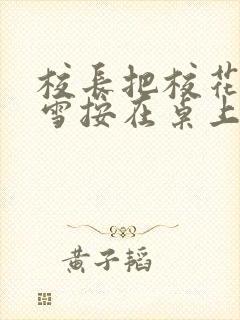 校長把校花
雪按在桌上
黄子韬